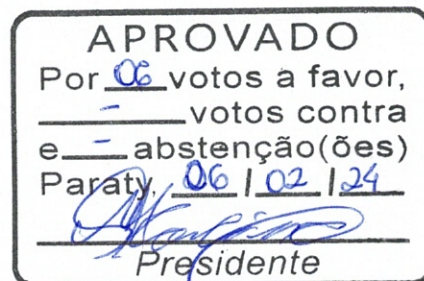 APROVADO
Por 06 votos a favor,
- votos contra
e - abstenção(ões)
Paraty, 06 / 02 / 24
Presidente